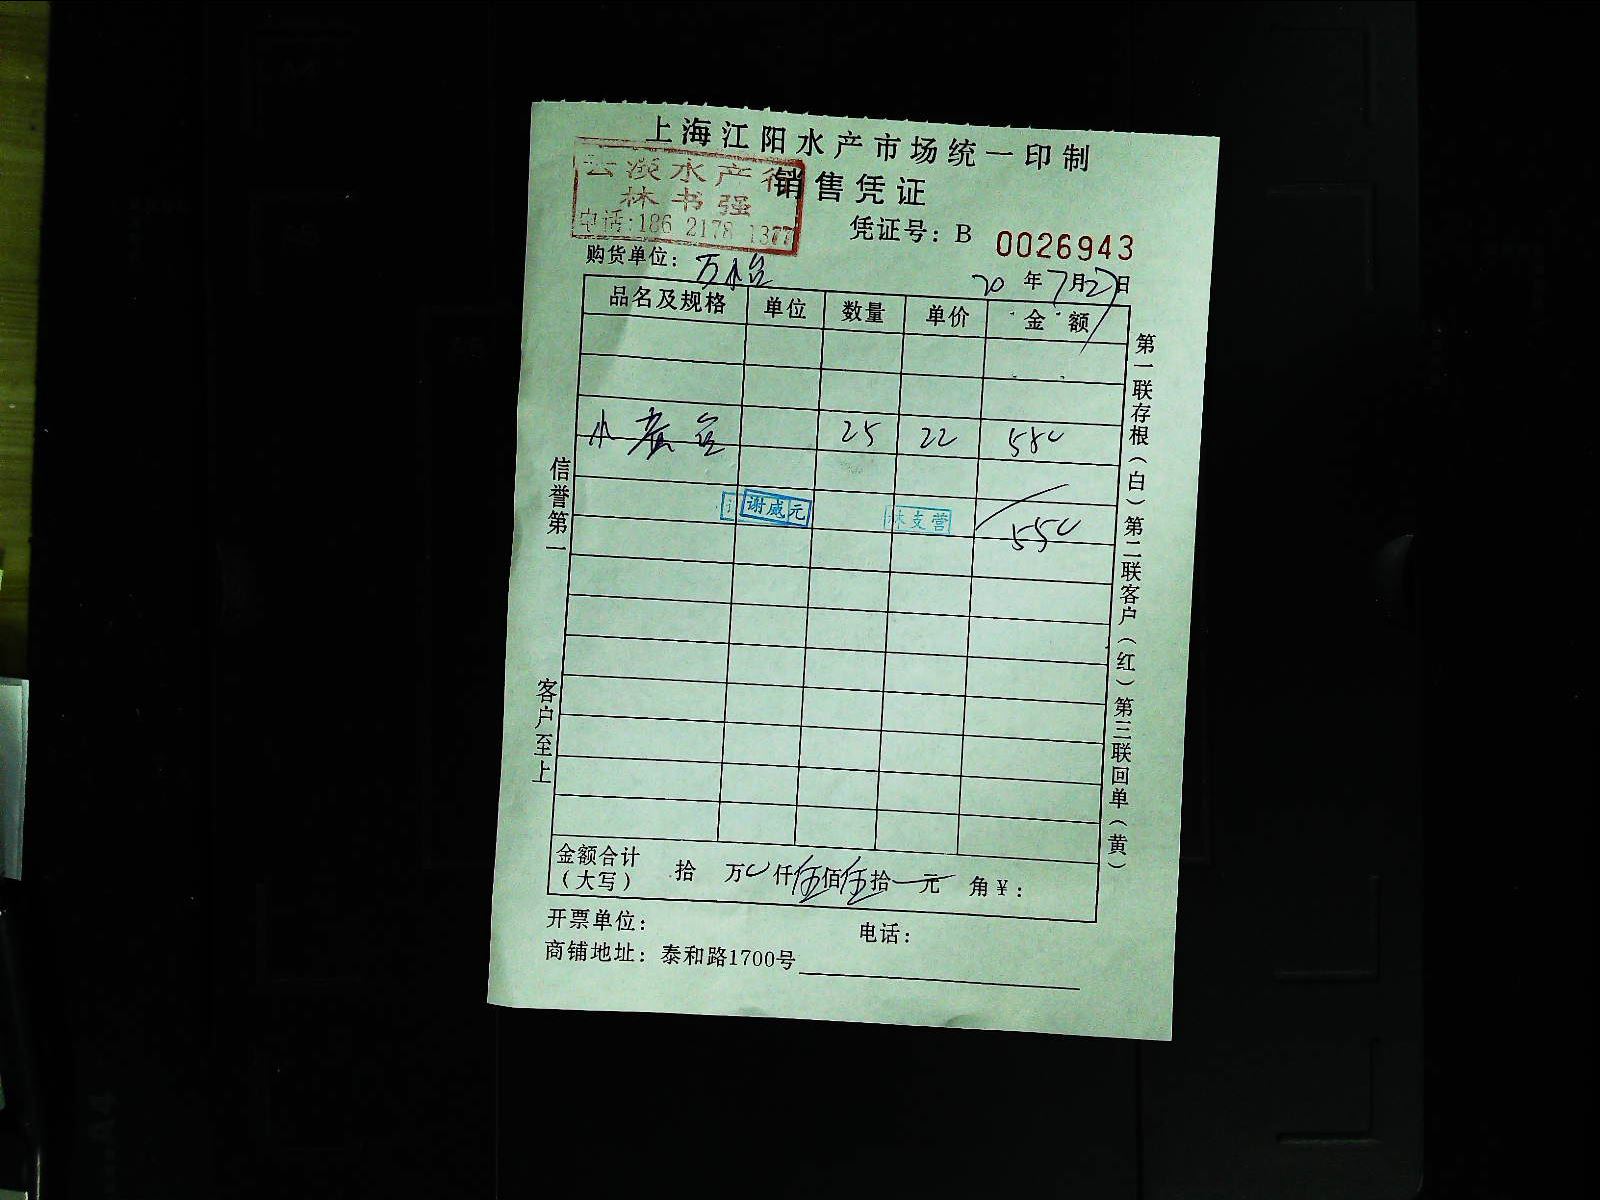 上海江阳水产市场统一印制
销售凭证
云漠水产行
林书强
电话:186 2178 1377
凭证号: B 0026943
购货单位:
20 年 7月27日
品名及规格 单位 数量 单价 金额
小黄鱼 25 22 550
谢咸元 林支营
550
金额合计(大写) 拾 万 仟伍佰伍拾 元 角¥:
开票单位: 电话:
商铺地址: 泰和路1700号
信誉第一 客户至上
第一联存根(白)第二联客户(红)第三联回单(黄)